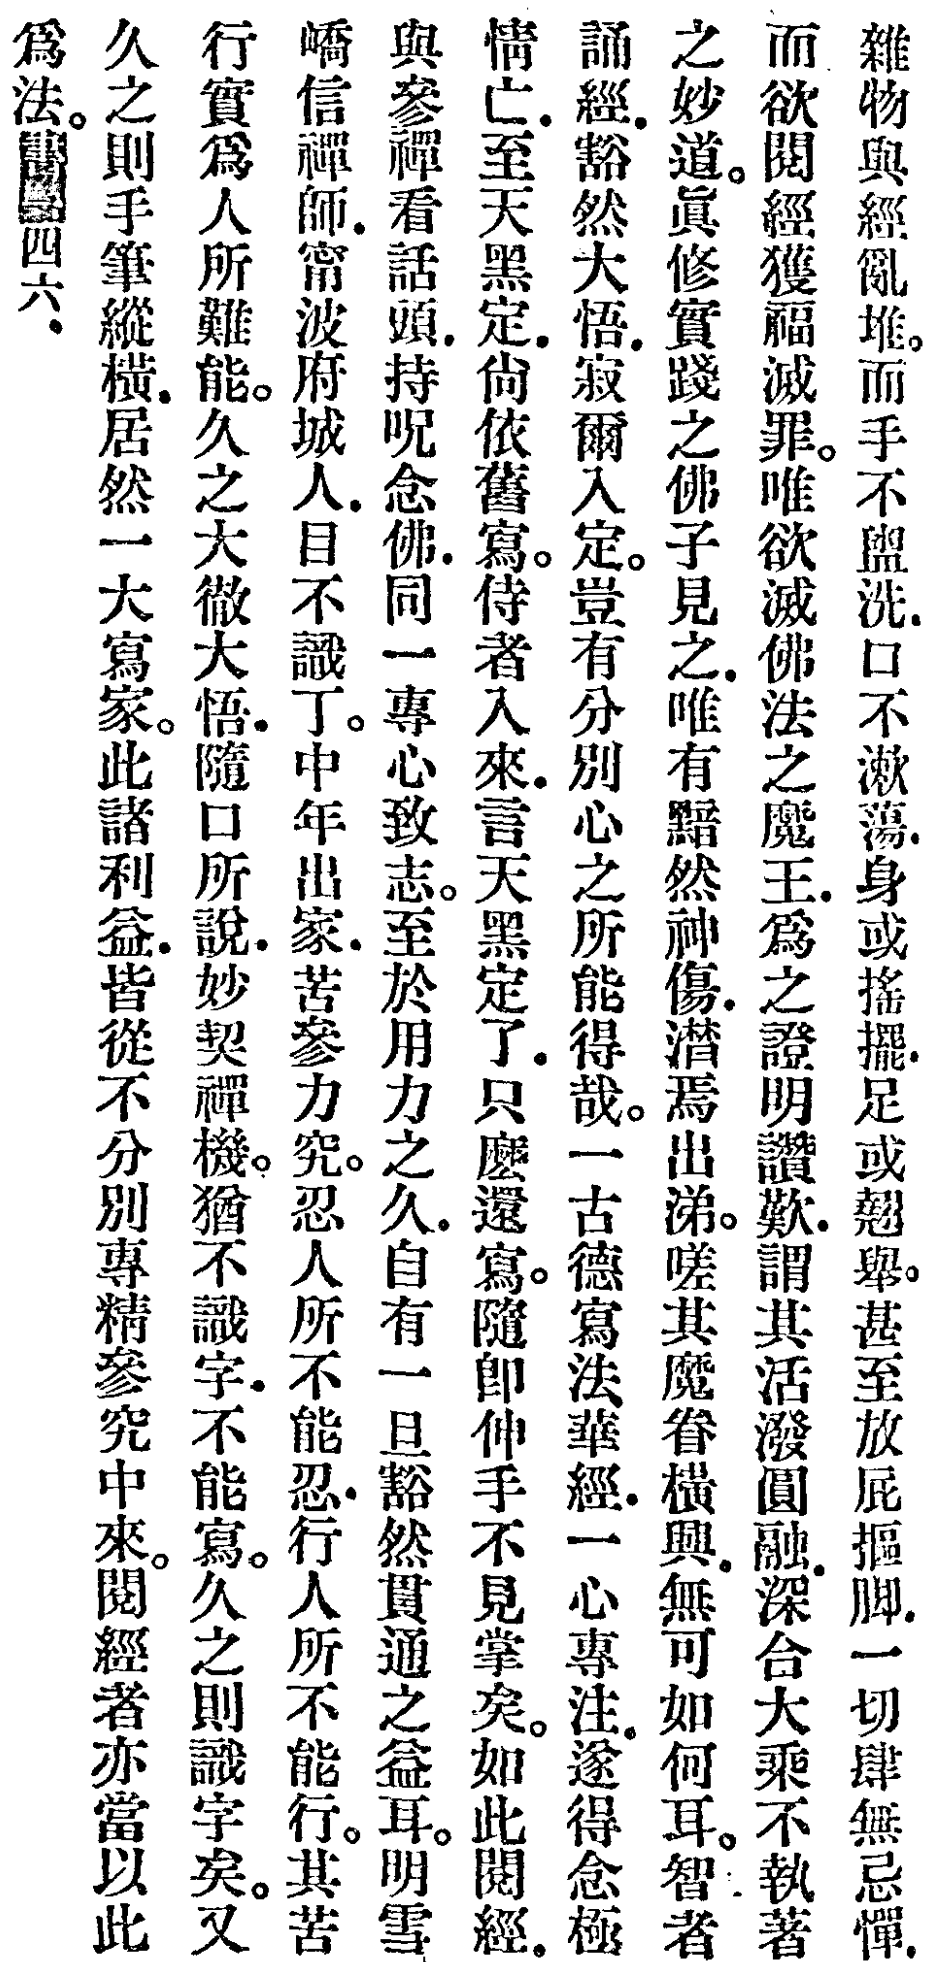 雜物與經亂堆。而手不盥洗．口不漱蕩．身或搖擺．足或翹舉。甚至放屁摳脚．一切肆無忌憚．
而欲閱經獲福滅罪。唯欲滅佛法之魔王．爲之證明讚歎．謂其活潑圓融．深合大乘不執著
之妙道。眞修實踐之佛子見之．唯有黯然神傷．潸焉出涕。嗟其魔眷橫興．無可如何耳。智者
誦經．豁然大悟．寂爾入定。豈有分別心之所能得哉。一古德寫法華經．一心專注．遂得念極
情亡．至天黑定．尙依舊寫。侍者入來．言天黑定了．只麽還寫。隨卽伸手不見掌矣。如此閱經．
與參禪看話頭．持呪念佛．同一專心致志。至於用力之久．自有一旦豁然貫通之益耳。明雪
嶠信禪師．甯波府城人．目不識丁。中年出家．苦參力究。忍人所不能忍．行人所不能行。其苦
行實爲人所難能。久之大徹大悟．隨口所說．妙契禪機。猶不識字．不能寫。久之則識字矣。又
久之則手筆縱橫．居然一大寫家。此諸利益．皆從不分別專精參究中來。閱經者亦當以此
爲法。書壹四六．